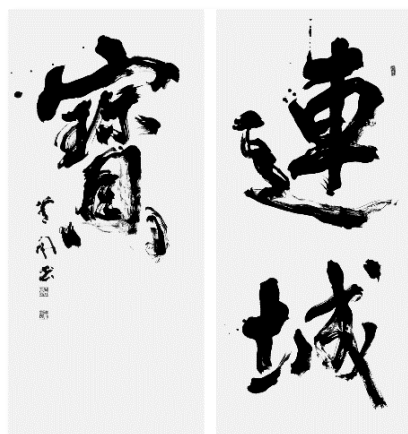 連城
寶